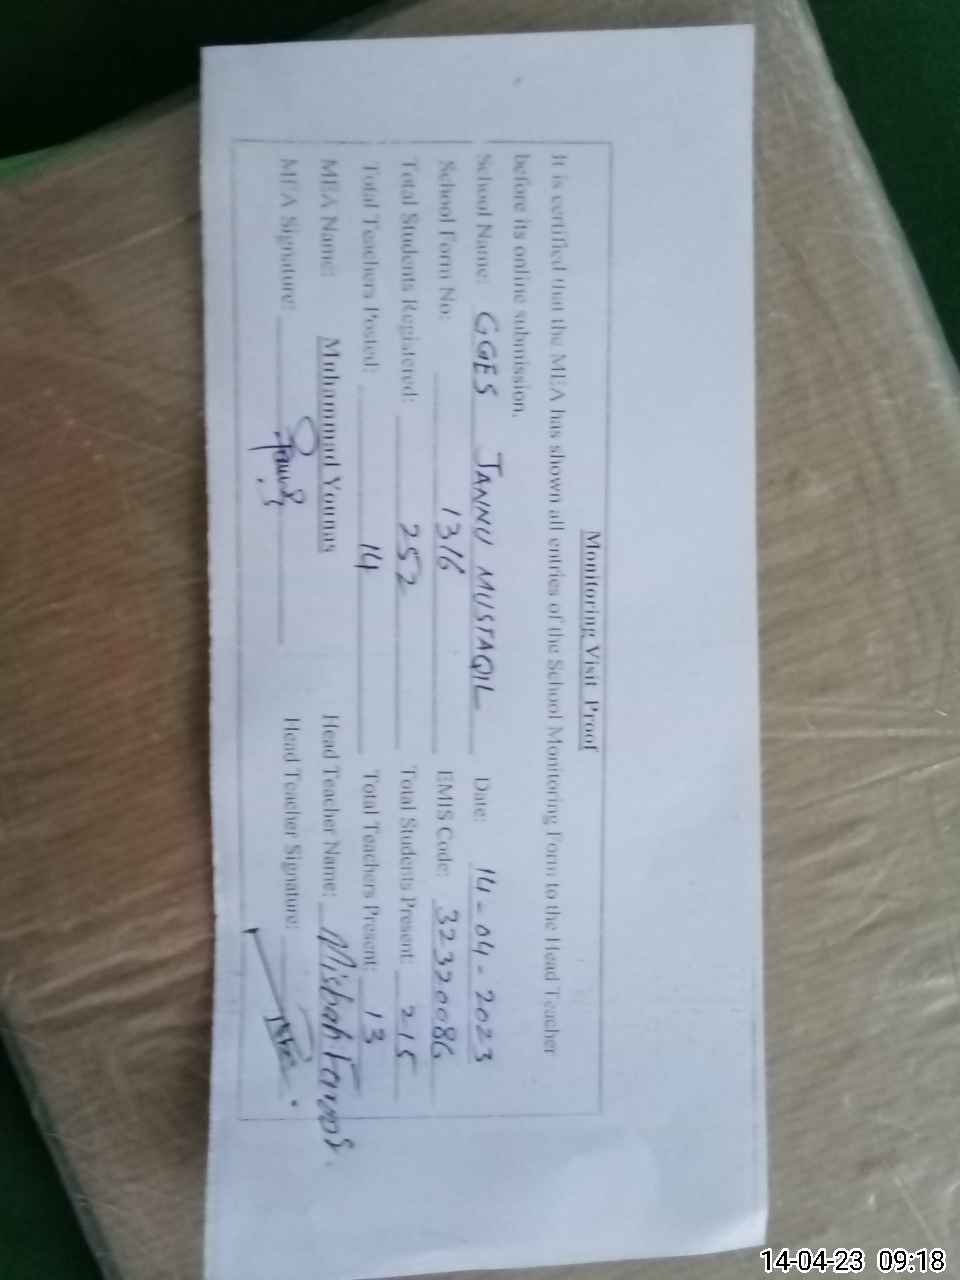 Monitoring Visit Proof
It is certified that the MEA has shown all entries of the School Monitoring Form to the Head Teacher
before its online submission.
School Name: GGES JANNU MUSTAQIL Date: 14-04-2023
School Form No: 1316 EMIS Code: 32320086
Total Students Registered: 252 Total Students Present: 215
Total Teachers Posted: 14 Total Teachers Present: 13
MEA Name: Muhammad Younas Head Teacher Name: Misbah Farooq.
MEA Signature: Head Teacher Signature:
14-04-23 09:18